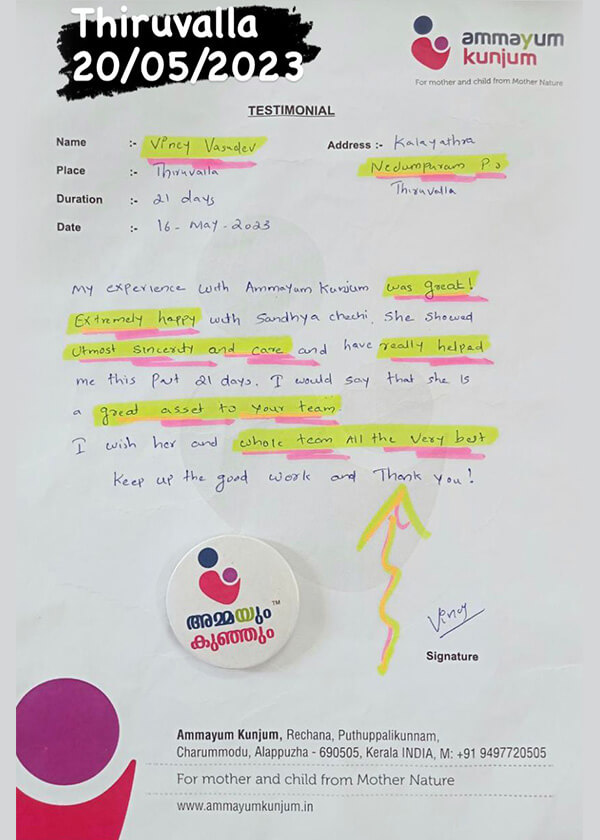 Thiruvalla
20/05/2023
ammayum
kunjum
For mother and child from Mother Nature
TESTIMONIAL
Name :- Viney Vasudev
Address :- Kalayathra
Nedumpuram P.O
Thiruvalla
Place :- Thiruvalla
Duration :- 21 days
Date :- 16 - May - 2023
My experience with Ammayum Kunjum was great!
Extremely happy with Sandhya chechi. She showed
Utmost sincerity and care and have really helped
me this Past 21 days. I would say that she is
a great asset to your team.
I wish her and whole team All the very best
Keep up the good work and Thank you!
അമ്മയും TM
കുഞ്ഞും
Viney
Signature
Ammayum Kunjum, Rechana, Puthuppalikunnam,
Charummodu, Alappuzha - 690505, Kerala INDIA, M: +91 9497720505
For mother and child from Mother Nature
www.ammayumkunjum.in